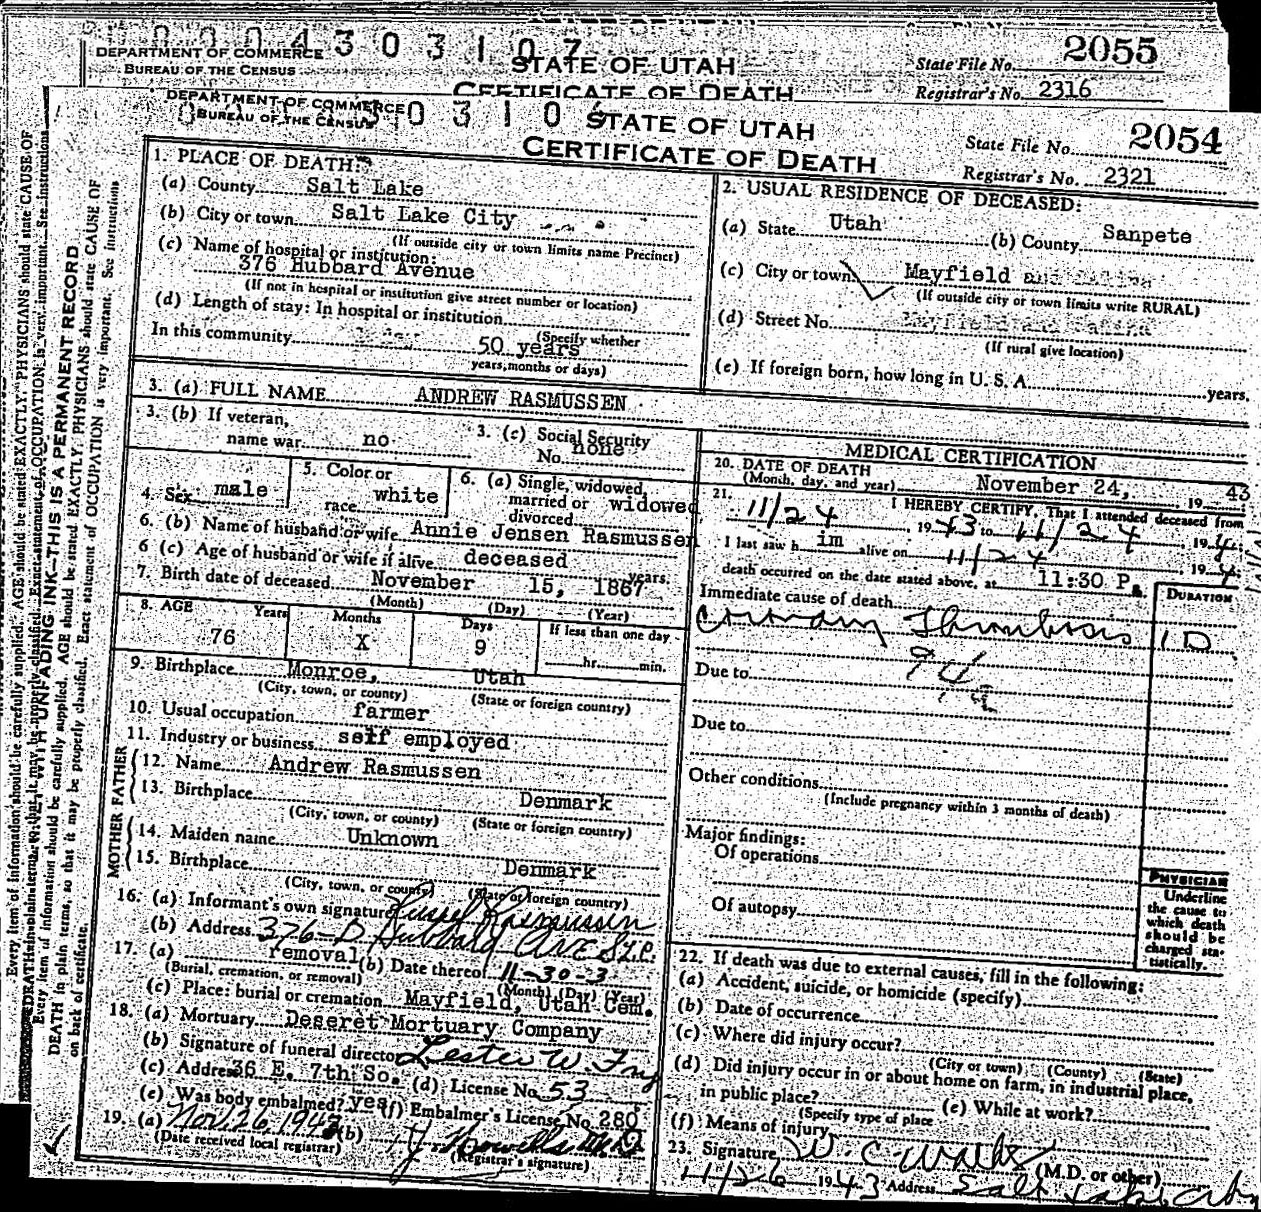 0 0 0 4 3 0 3 1 0 7
DEPARTMENT OF COMMERCE
BUREAU OF THE CENSUS
STATE OF UTAH
CERTIFICATE OF DEATH
State File No. 2055
Registrar's No. 2316
DEPARTMENT OF COMMERCE
BUREAU OF THE CENSUS
3 0 3 1 0 6
STATE OF UTAH
CERTIFICATE OF DEATH
State File No. 2054
Registrar's No. 2321
Every item of information should be carefully supplied. AGE should be stated EXACTLY. PHYSICIANS should state CAUSE OF
WITH UNFADING INK—THIS IS A PERMANENT RECORD
Every item of information should be carefully supplied. AGE should be stated EXACTLY. PHYSICIANS should state CAUSE OF
DEATH in plain terms, so that it may be properly classified. Exact statement of OCCUPATION is very important. See instructions
on back of certificate.
1. PLACE OF DEATH:
(a) County Salt Lake
(b) City or town Salt Lake City
(If outside city or town limits name Precinct)
(c) Name of hospital or institution:
376 Hubbard Avenue
(If not in hospital or institution give street number or location)
(d) Length of stay: In hospital or institution
(Specify whether
In this community 50 years
years, months or days)
2. USUAL RESIDENCE OF DECEASED:
(a) State Utah (b) County Sanpete
(c) City or town Mayfield
(If outside city or town limits write RURAL)
(d) Street No.
(If rural give location)
(e) If foreign born, how long in U. S. A. years.
3. (a) FULL NAME ANDREW RASMUSSEN
3. (b) If veteran,
name war no
3. (c) Social Security
No. none
4. Sex male
5. Color or
race white
6. (a) Single, widowed,
married or
divorced widowed
6. (b) Name of husband or wife Annie Jensen Rasmussen
6 (c) Age of husband or wife if alive deceased years.
7. Birth date of deceased November 15, 1867
(Month) (Day) (Year)
8. AGE Years Months Days If less than one day
76 X 9 hr. min.
9. Birthplace Monroe, Utah
(City, town, or county) (State or foreign country)
10. Usual occupation farmer
11. Industry or business self employed
FATHER
12. Name Andrew Rasmussen
13. Birthplace Denmark
(City, town, or county) (State or foreign country)
MOTHER
14. Maiden name Unknown
15. Birthplace Denmark
(City, town, or county) (State or foreign country)
16. (a) Informant's own signature Rasmussen
(b) Address 376-D Hubbard Ave S.L.C.
17. (a) removal (b) Date thereof 11-30-3
(Burial, cremation, or removal) (Month) (Day) (Year)
(c) Place: burial or cremation Mayfield, Utah Cem.
18. (a) Mortuary Deseret Mortuary Company
(b) Signature of funeral director Lester W. Fry
(c) Address 36 E. 7th So. (d) License No. 53
(e) Was body embalmed? yes (f) Embalmer's License No. 280
19. (a) Nov. 26, 1943 (b)
(Date received local registrar) (Registrar's signature)
MEDICAL CERTIFICATION
20. DATE OF DEATH
(Month, day, and year) November 24, 19 43
21. I HEREBY CERTIFY, That I attended deceased from
11/24, 19 43 to 11/24, 19 4
I last saw h im alive on 11/24, 19 4
death occurred on the date stated above, at 11:30 P.
Immediate cause of death
DURATION
Coronary Thrombosis 1 D
Due to
Due to
Other conditions
(Include pregnancy within 3 months of death)
Major findings:
Of operations
Of autopsy
PHYSICIAN
Underline
the cause to
which death
should be
charged sta-
tistically.
22. If death was due to external causes, fill in the following:
(a) Accident, suicide, or homicide (specify)
(b) Date of occurrence
(c) Where did injury occur?
(City or town) (County) (State)
(d) Did injury occur in or about home on farm, in industrial place,
in public place? (e) While at work?
(Specify type of place
(f) Means of injury
23. Signature W. C. Walker (M.D. or other)
11/26 19 43 Address Salt Lake City